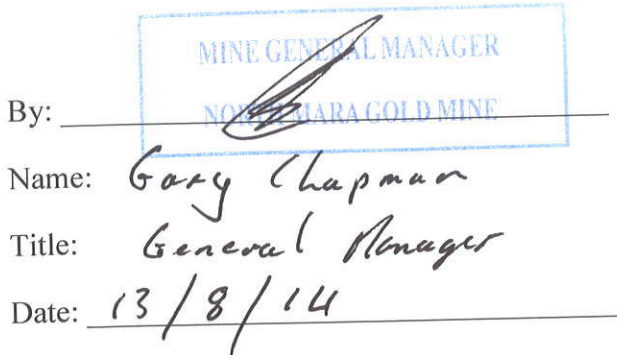 MINE GENERAL MANAGER
NORTH MARA GOLD MINE
By:
Name: Gary Chapman
Title: General Manager
Date: 13/8/14